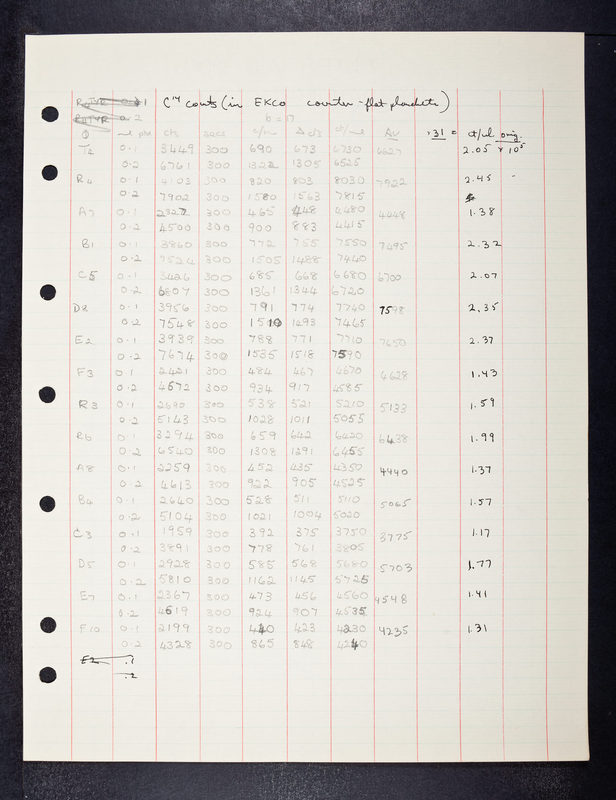 C¹⁴ counts (in EKCO counter - flat planchets)
b = 17
Q ml pla cts secs c/m Δ c/s c/ml Av ·31 = ct/ml orig.
T2 0·1 3449 300 690 673 6730 6627 2.05 × 10⁵
0·2 6761 300 1322 1305 6525
R4 0·1 4103 300 820 803 8030 7922 2.45
0·2 7902 300 1580 1563 7815
A7 0·1 2327 300 465 448 4480 4448 1.38
0·2 4500 300 900 883 4415
B1 0·1 3860 300 772 755 7550 7495 2.32
0·2 7524 300 1505 1488 7440
C5 0·1 3426 300 685 668 6680 6700 2.07
0·2 6807 300 1361 1344 6720
D8 0·1 3956 300 791 774 7740 7598 2.35
0·2 7548 300 1510 1493 7465
E2 0·1 3939 300 788 771 7710 7650 2.37
0·2 7674 300 1535 1518 7590
F3 0·1 2421 300 484 467 4670 4628 1.43
0·2 4672 300 934 917 4585
R3 0·1 2690 300 538 521 5210 5133 1.59
0·2 5143 300 1028 1011 5055
R6 0·1 3294 300 659 642 6420 6438 1.99
0·2 6540 300 1308 1291 6455
A8 0·1 2259 300 452 435 4350 4440 1.37
0·2 4613 300 922 905 4525
B4 0·1 2640 300 528 511 5110 5065 1.57
0·2 5104 300 1021 1004 5020
C3 0·1 1959 300 392 375 3750 3775 1.17
0·2 3891 300 778 761 3805
D5 0·1 2928 300 585 568 5680 5703 1.77
0·2 5810 300 1162 1145 5725
E7 0·1 2367 300 473 456 4560 4548 1.41
0·2 4619 300 924 907 4535
F10 0·1 2199 300 440 423 4230 4235 1.31
0·2 4328 300 865 848 4240
E2 .1
.2